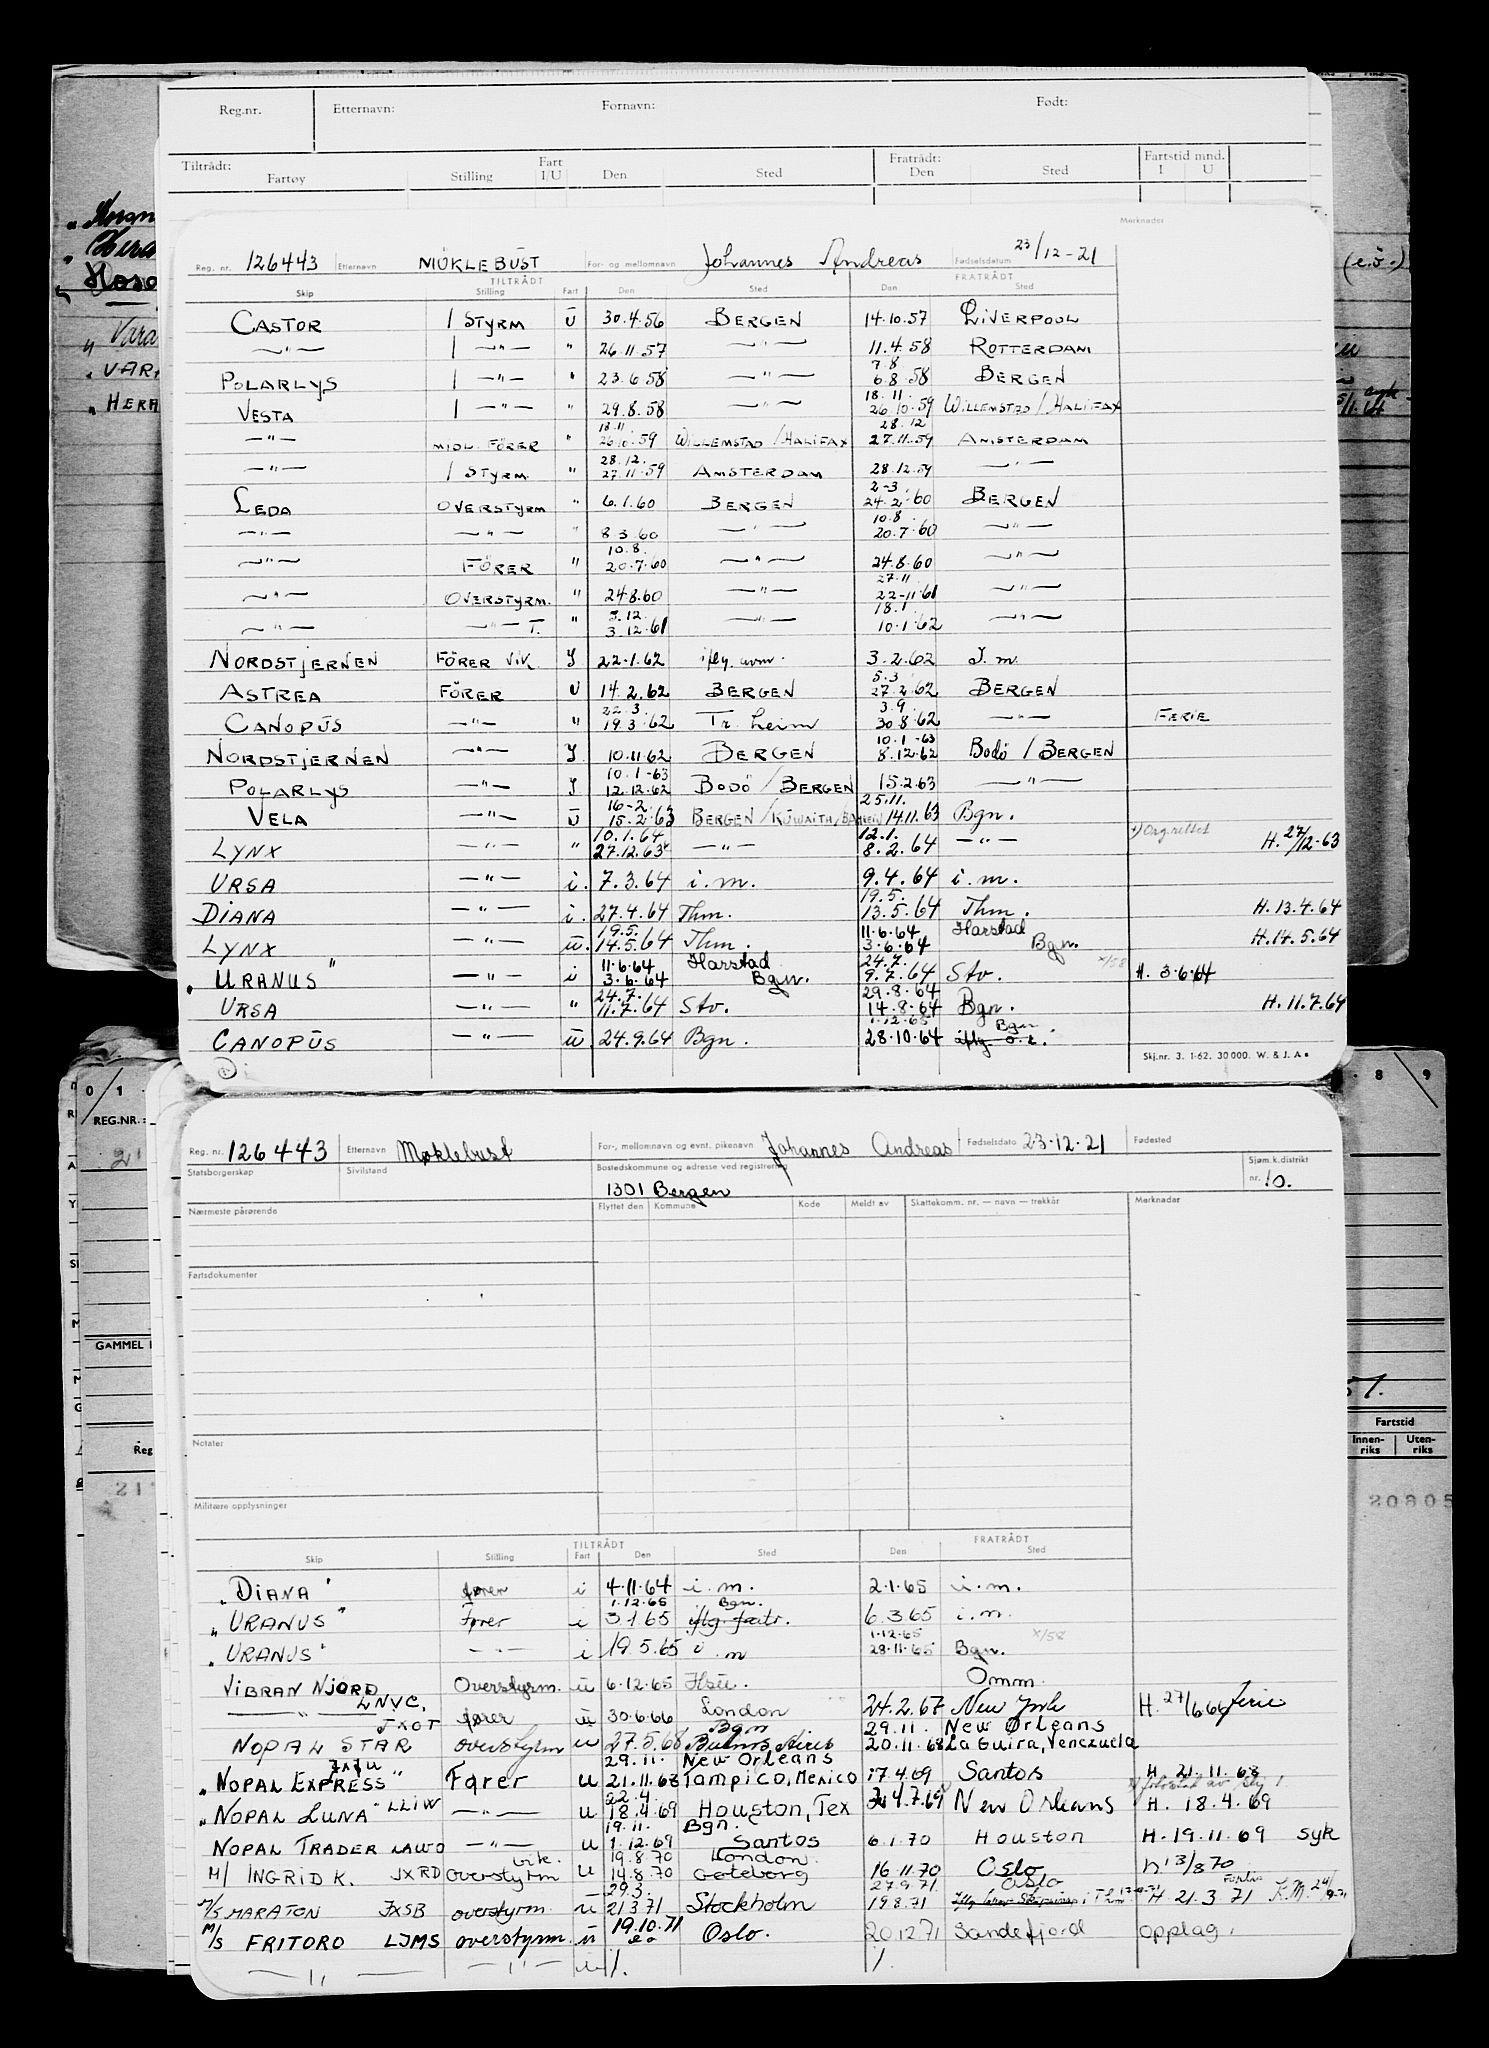 Reg.nr. Etternavn: Fornavn: Født:
Tiltrådt: Fart Fratrådt: Fartstid mnd.
Fartøy Stilling I/U Den Sted Den Sted I U
Merknader
Reg. nr. 126443 Etternavn MÖKLEBUST For- og mellomnavn Johannes Andreas Fødselsdatum 23/12-21
TILTRÅDT FRATRÅDT
Skip Stilling Fart Den Sted Den Sted
CASTOR 1 STYRM Ü 30.4.56 BERGEN 14.10.57 LIVERPOOL
—"— 1 —"— " 26.11.57 —"— 11.4.58 ROTTERDAM
7.8
POLARLYS 1 —"— " 23.6.58 —"— 6.8.58 BERGEN
18.11.
VESTA 1 —"— " 29.8.58 —"— 26.10.59 WILLEMSTAD / HALIFAX
18.11 28.12
—"— MIDL. FÖRER " 26.10.59 WILLEMSTAD / HALIFAX 27.11.59 AMSTERDAM
28.12.
—"— 1 STYRM. " 27.11.59 AMSTERDAM 28.12.59 —"—
2-3
LEDA OVERSTYRM " 6.1.60 BERGEN 24.2.60 BERGEN
10.8.
—"— —"— " 8.3.60 —"— 20.7.60 —"—
10.8.
—"— FÖRER " 20.7.60 —"— 24.8.60 —"—
27.11
—"— OVERSTYRM. " 24.8.60 —"— 22-11.61 —"—
3.12. 18.1.
—"— —"— T. " 3.12.61 —"— 10.1.62 —"—
NORDSTJERNEN FÖRER VIK. I 22.1.62 3.2.62 I.m.
5.3
ASTREA FÖRER U 14.2.62 BERGEN 27.2.62 BERGEN
22.3. 3.9.
CANOPÜS —"— " 19.3.62 Tr.heim 30.8.62 —"— FERIE
10.1-63
NORDSTJERNEN —"— I 10.11.62 BERGEN 8.12.62 Bodö / BERGEN
10.1-63
POLARLYS —"— I 12.12.62 BODÖ / BERGEN 15.2.63 —"—
16-2. 25.11.
VELA —"— Ü 15.2.63 BERGEN / KÜWAITH / BAHREIN 14.11.63 Bgn.
10.1.64 12.1.
LYNX —"— " 27.12.63 —"— 8.2.64 —"— H. 27/12-63
URSA —"— i. 7.3.64 i.m. 9.4.64 i.m.
19.5.
DIANA —"— i. 27.4.64 Thm. 13.5.64 Thm. H. 13.4.64
19.5. 11.6.64 Harstad
LYNX —"— ü. 14.5.64 Thm. 3.6.64 Bgn. H. 14.5.64
11.6.64 Harstad 24.7. x/58
"URANUS" —"— i 3.6.64 Bgn. 9.7.64 Stv. H. 3.6.64
24.7. 29.8.64
URSA —"— " 11.7.64 Stv. 14.8.64 Bgn. H. 11.7.64
1.12.65 Bgn.
CANOPÜS —"— ü. 24.9.64 Bgn. 28.10.64
Skj.nr. 3. 1-62. 30000. W. & J. A.
Reg. nr. 126443 Etternavn Møklebust For-, mellomnavn og evnt. pikenavn Johannes Andreas Fødselsdato 23.12.21 Fødested
Statsborgerskap Sivilstand Bostedskommune og adresse ved registrering Sjøm.k.distrikt
1301 Bergen nr. 10.
Nærmeste pårørende Flyttet den Kommune Kode Meldt av Skattekomm. nr. — navn — trekkår Merknader
Fartsdokumenter
Notater
Militære opplysninger
TILTRÅDT FRATRÅDT
Skip Stilling Fart Den Sted Den Sted
"DIANA" fører i 4.11.64 i.m. 2.1.65 i.m.
1.12.65 Bgn.
"URANUS" Fører i 3.1.65 6.3.65 i.m.
1.12.65 x/58
"URANUS" —"— i 19.5.65 i m 28.11.65 Bgn.
Omm.
VIBRAN NJORD Overstyrm. ü 6.12.65
LNVC.
—"— fører ü 30.6.66 London 24.2.67 New York H. 27/6.66 ferie
JXOT Bgn 29.11. New Orleans
NOPAL STAR overstyrm u 27.5.68 Buenos Aires 20.11.68 La Guira, Venezuela
29.11. New Orleans
"NOPAL EXPRESS" Fører u 21.11.68 Tampico, Mexico 17.4.69 Santos H. 21.11.68
22.4.
"NOPAL LUNA" LLIW —"— u 18.4.69 Houston, Tex 4.7.69 New Orleans H. 18.4.69
19.11. Bgn.
NOPAL TRADER LAWO —"— u 1.12.69 Santos 6.1.70 Houston H. 19.11.69 syk
vik. 19.8.70 London.
M/ INGRID K. JXRD overstyrm u 14.8.70 Göteborg 16.11.70 Oslo 13/8 70
29.3. 27.9.71 Oslo
M/S MARATON JXSB overstyrm. ü 21.3.71 Stockholm 19.8.71 H. 21.3.71
M/S FRITORO LJMS overstyrm. ü 19.10.71 Oslo. 20.12.71 Sandefjord opplag.
—"— —"— ü 1/. 1/.
0 1
REG.NR.:
GAMMEL
Reg
8 9
Fartstid
Innenriks Utenriks
20805